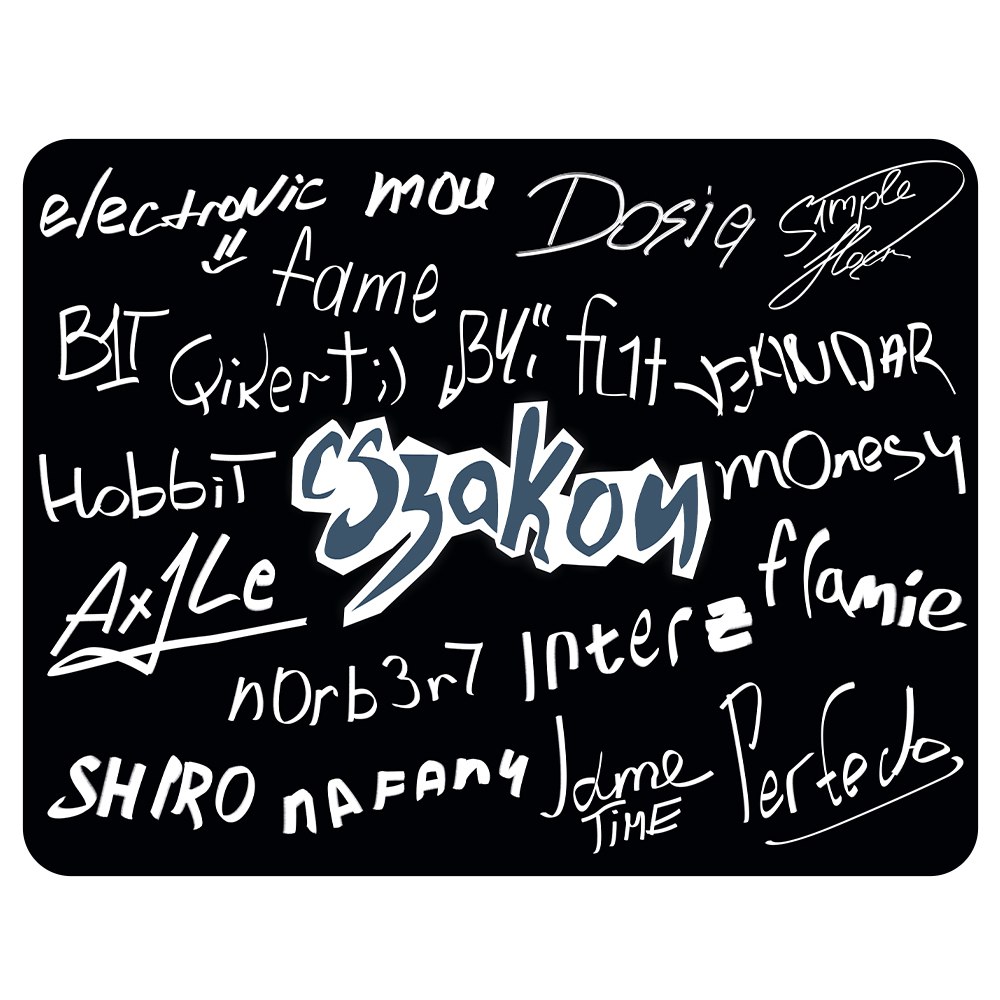 electronic mou Dosia S1mple
fame
B1T Qikert :) fL1t JEKINDAR
HobbiT cszakon m0nesy
Ax1Le
flamie
n0rb3r7 Interz
SHIRO nAFAny Jame Perfecto
TIME